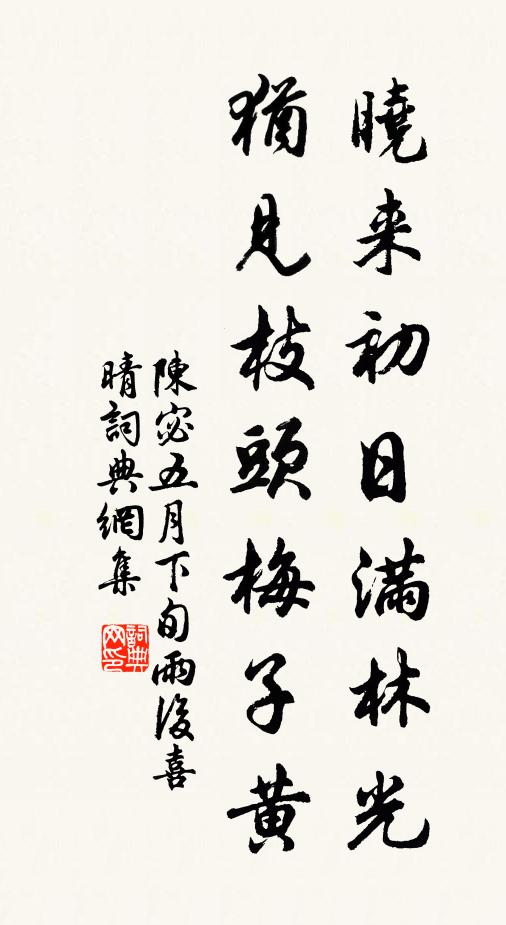 曉来初日满林光
猶見枝頭梅子黄
陳宓五月下旬雨後喜
晴詞典網集
詞典网印